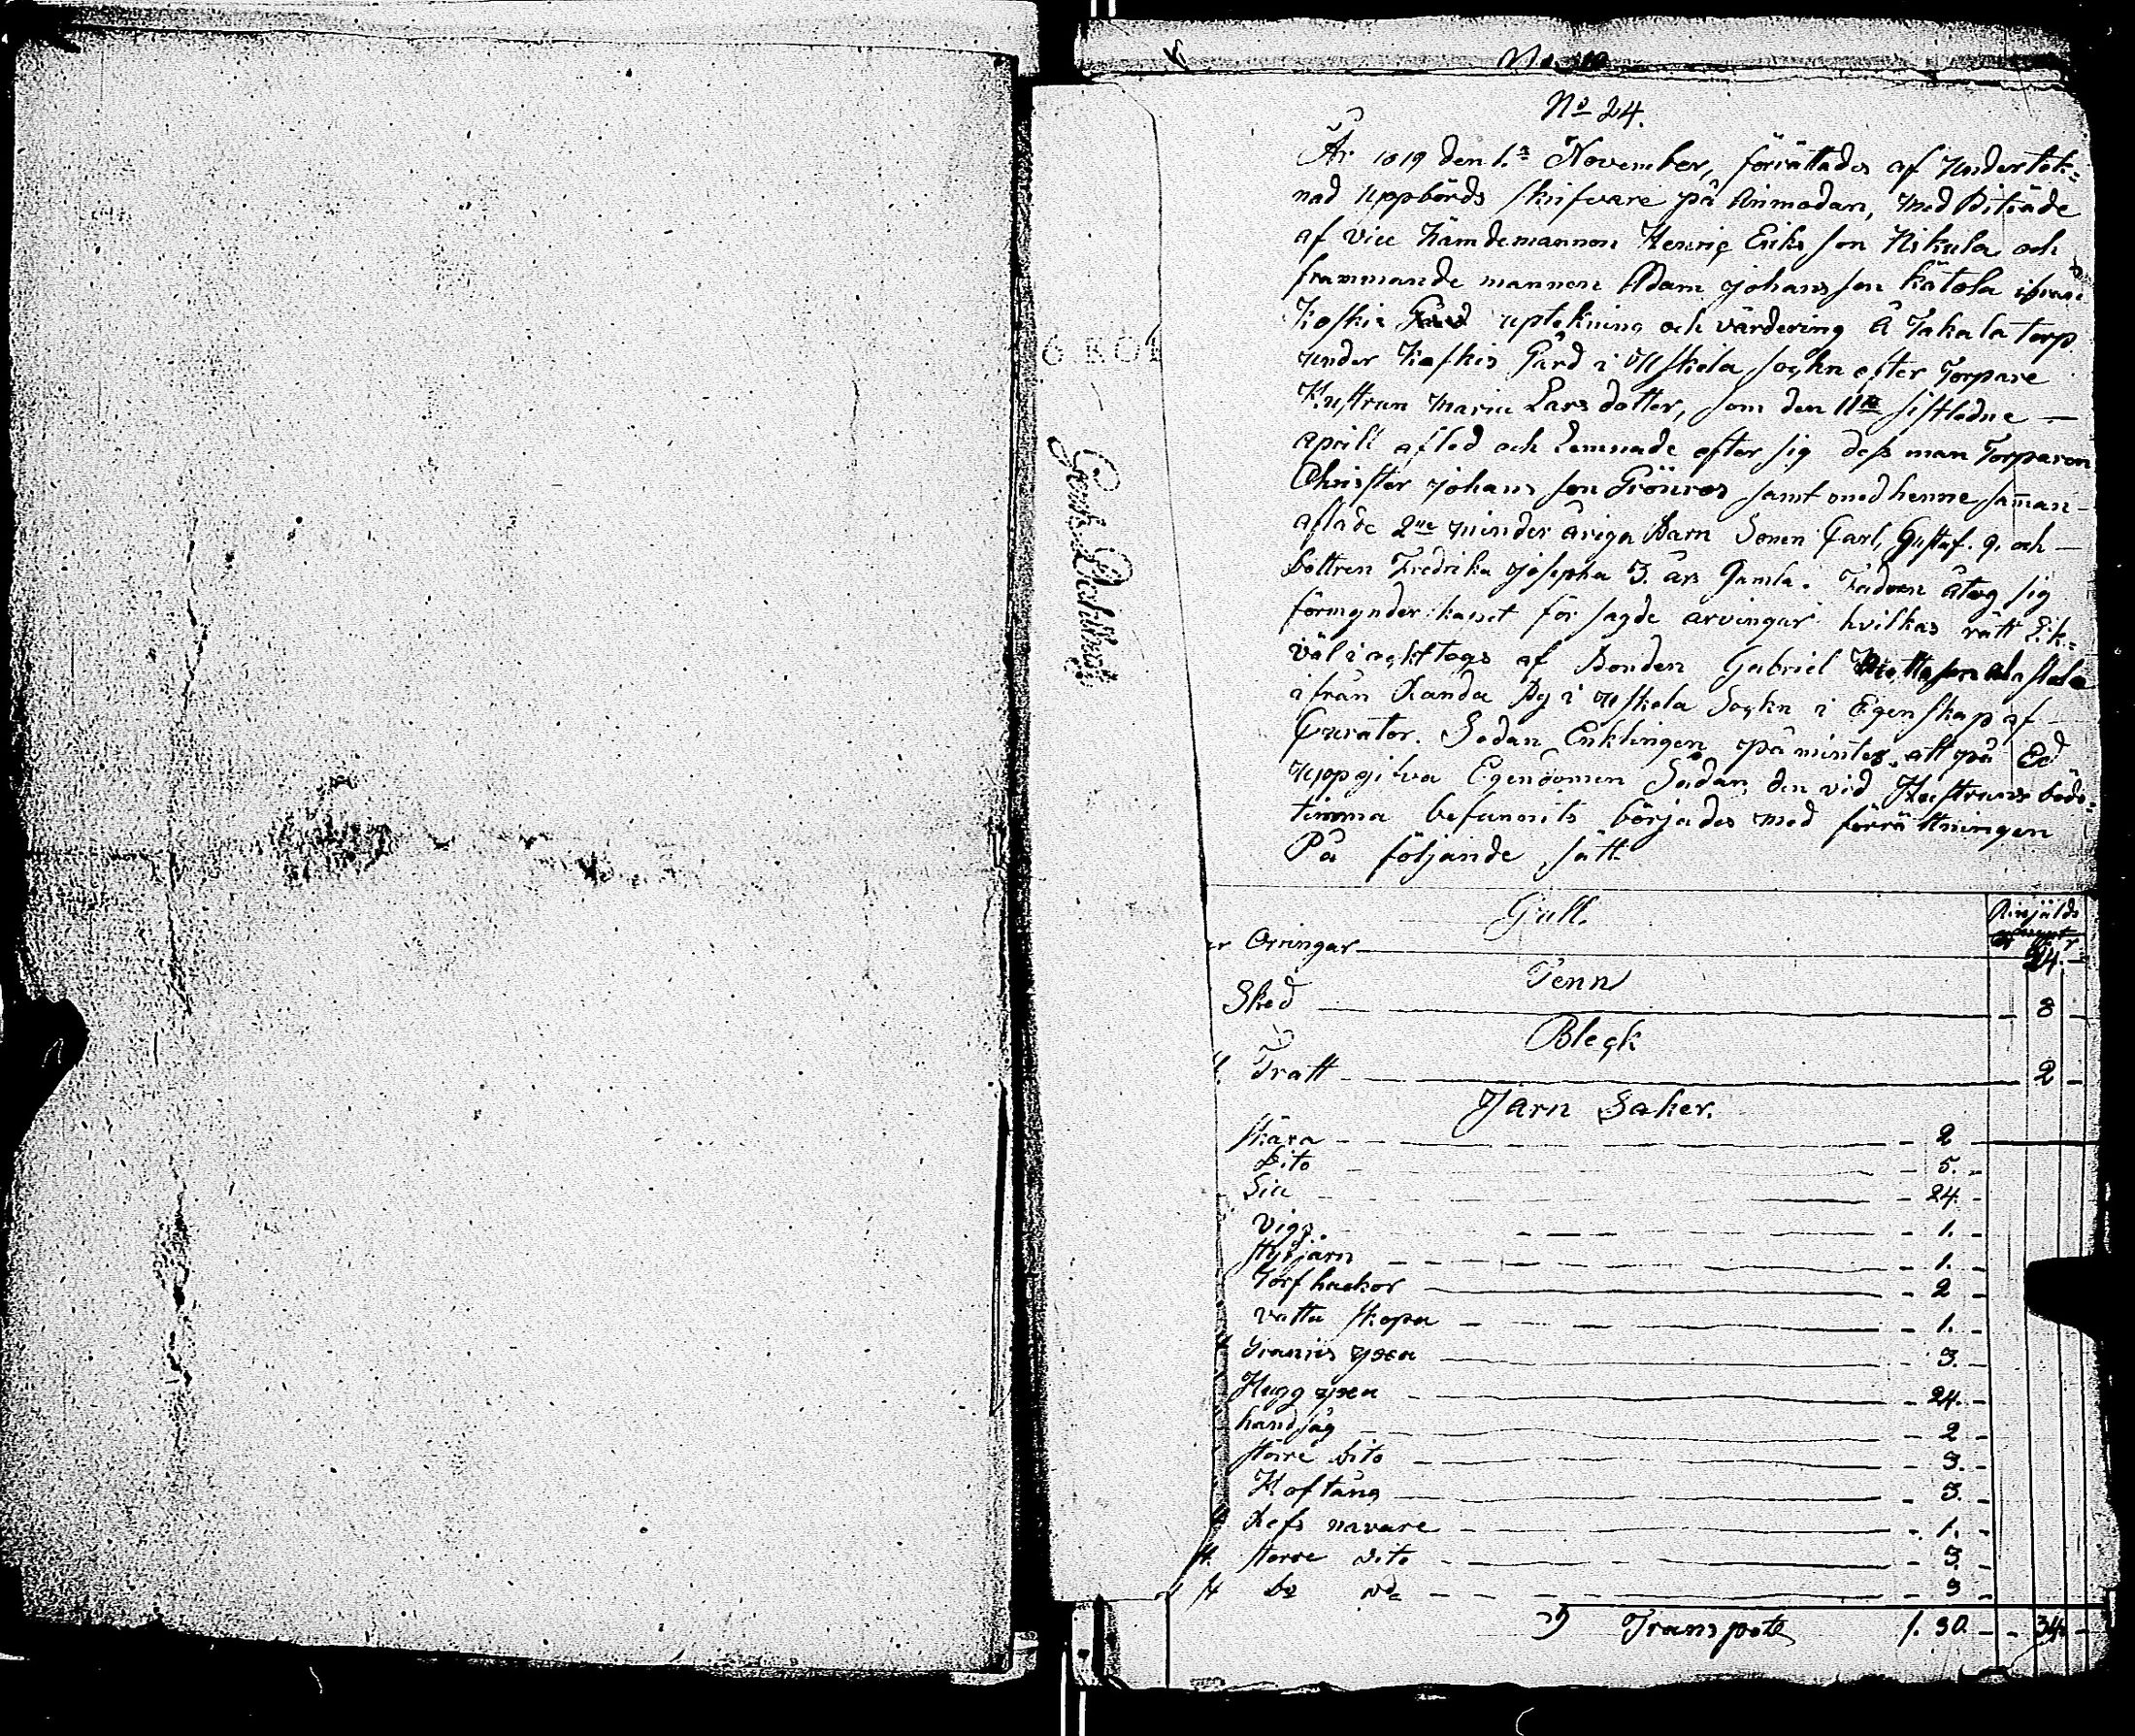 No 24.
År 1819 den 1.a November, förrättades af Undertek=
nad Uppbörds skrifvare på Anmodan, med Biträde
af vice Nämdemannen Henric Eriks son Nikula och
frammande mannen Adam Johans son Kätola ifrån
Koskis Gård uptekning och värdering å Takala torp
under Koskis Gård i Uskela Sockn efter Torpare
Hustrun Maria Lars dotter, som den 11te sistledne —
April afled och Lemnade efter sig dess man Torparen
Christer Johans son Grönros samt med henne samman
aflade 2ne minder åriga Barn Sonen Carl, Gustaf. 9. och —
Dottren Fredrika Josepha 3. års Gamla. Fadren åtog sig
förmynder skapet för sagde arvingar hvilkas rätt Lik=
väl i agkttogs af Bonden Gabriel
ifrån Randa By i Uskela Sockn i Egenskap af
Curator. Sedan Enklingen påmintes att på Ed
uppgifva Egendomen Sådan den vid Hustruns Döds=
timma befunnits börjades med förrättningen
På följande sätt
Gull.
Orringar 24. —
Tenn
Sked — 8
Bleck
1. Tratt 2 —
Jarn Saker.
skära — 2
Dito — 5. —
Lia — 24. —
Vigg — 1. —
1. —
Torf hackor — 2
vatta skopa — 1. —
yxa — 3. —
Hugg yxa — 24. —
handsåg — 2 —
större Dito — 3. —
Hoftång — 3. —
Refs navare — 1. —
st. storre Dito — 3. —
st Do Do — 3 —
Transport 1. 30. — 34. —